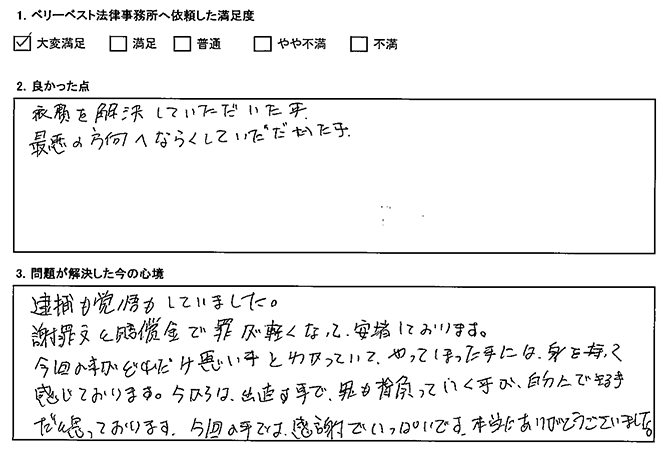 1. ベリーベスト法律事務所へ依頼した満足度
大変満足 満足 普通 やや不満 不満
2. 良かった点
を解決していただいた事。
最悪の方向へならくしていただけた事。
3. 問題が解決した今の心境
逮捕も覚悟もしていました。
謝罪文と賠償金で罪が軽くなって、安堵しております。
今回の事がどれだけ悪い事とわかっていて、やってしまった事には、身を持って
感じております。今からは、出直す事で、罪も背負っていく事が、自分にできる事
だと思っております。今回の事では、感謝でいっぱいです。本当にありがとうございました。